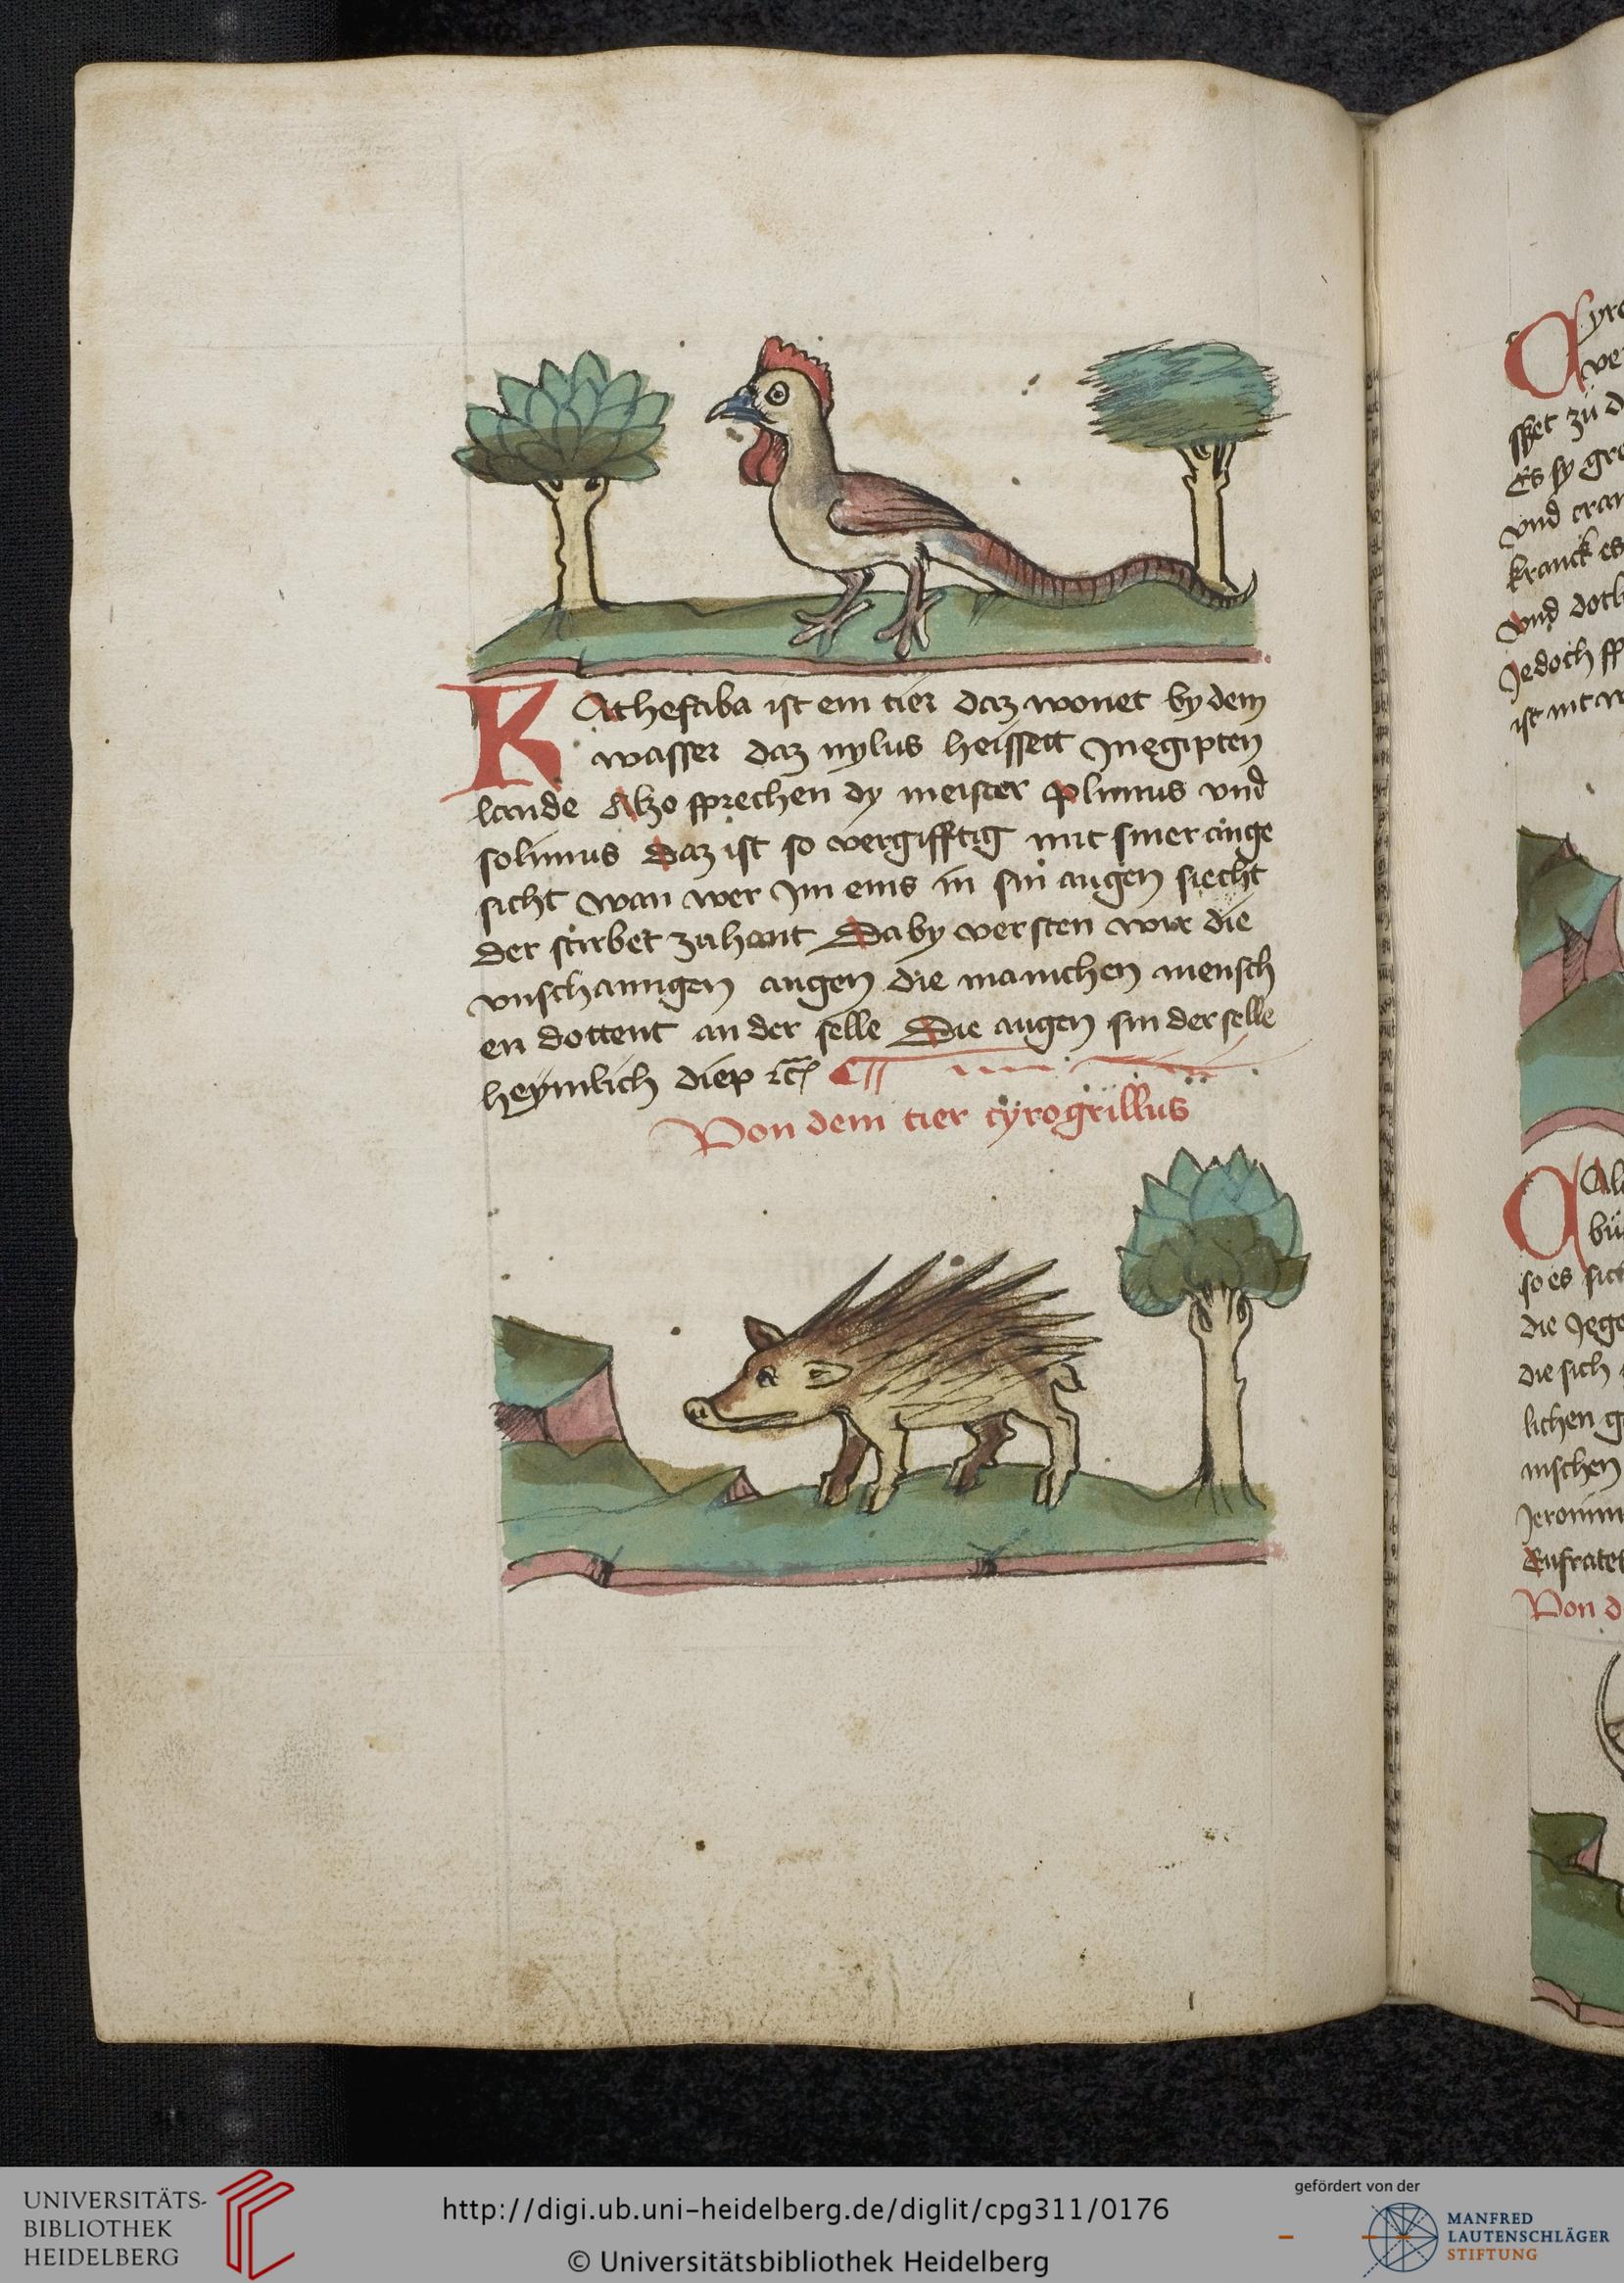 KAthefaba ist ein tier daz wonet by dem
wasser daz nylus heissett In egipten
lande Alzo sprechen dy meister plinius vnd
solinus Daz ist so vergifftig mit siner ange
sicht wan wer Im eins in sin augen siecht
der stirbet zuhant Da by versten wir die
vnschamigen augen die manichen mensch
en dottent an der selle Die augen sin der selle
heymlich diep
Von dem tier cyrogrillus
spet zü d
Es sy gro
vnd cran
kranck es
vnd doth
Jedoch sp
so es sich
die Jege
die sich
lichen g
mschen
Jeronim
Eufrates
Von d
UNIVERSITÄTS-
BIBLIOTHEK
HEIDELBERG
http://digi.ub.uni-heidelberg.de/diglit/cpg311/0176
© Universitätsbibliothek Heidelberg
gefördert von der
MANFRED
LAUTENSCHLÄGER
STIFTUNG